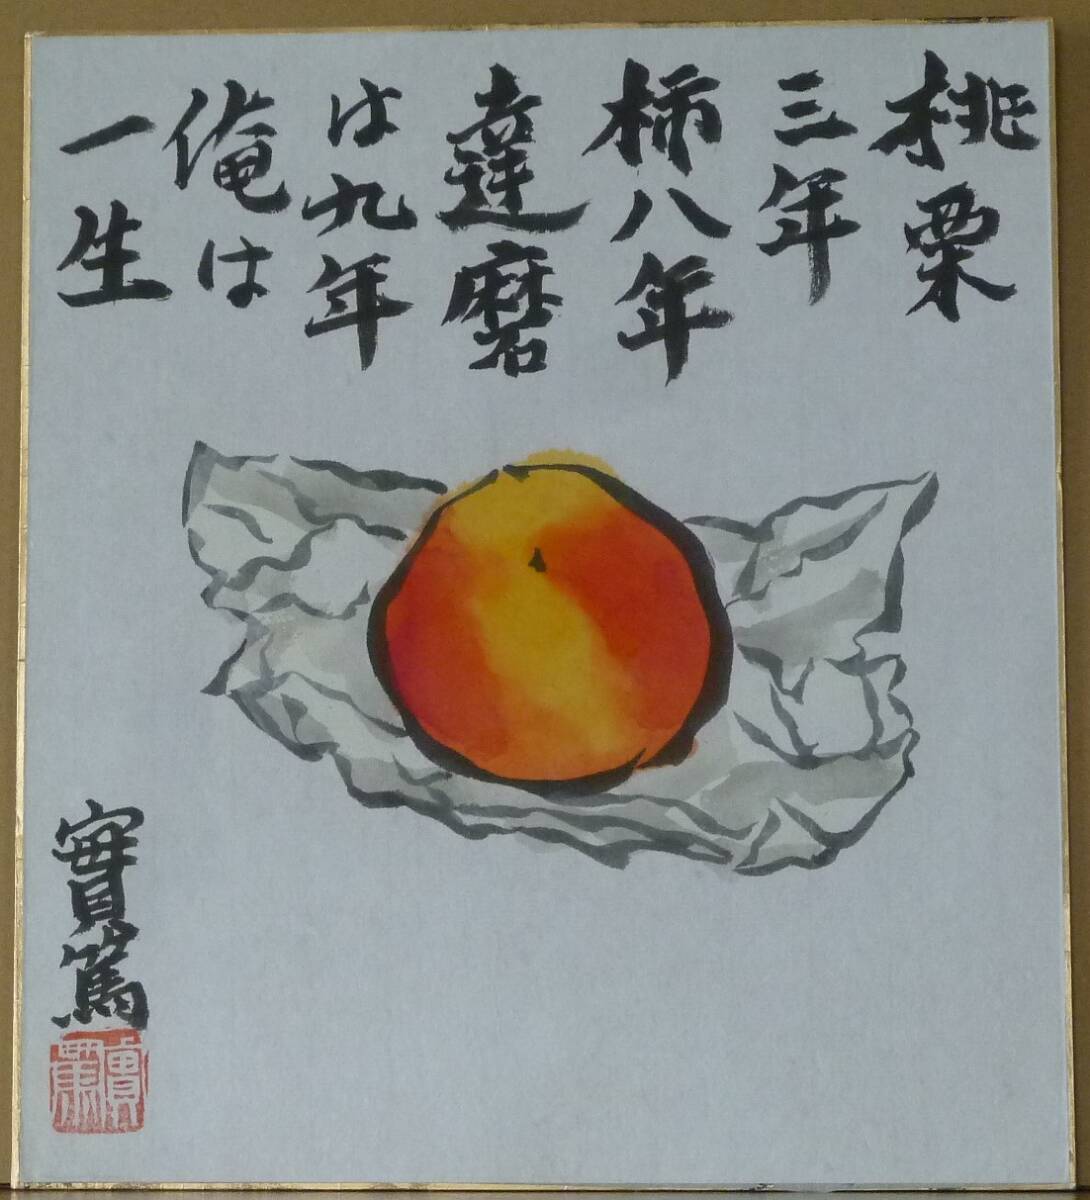 桃栗
三年
柿八年
達磨
は九年
俺は
一生
實篤
實篤